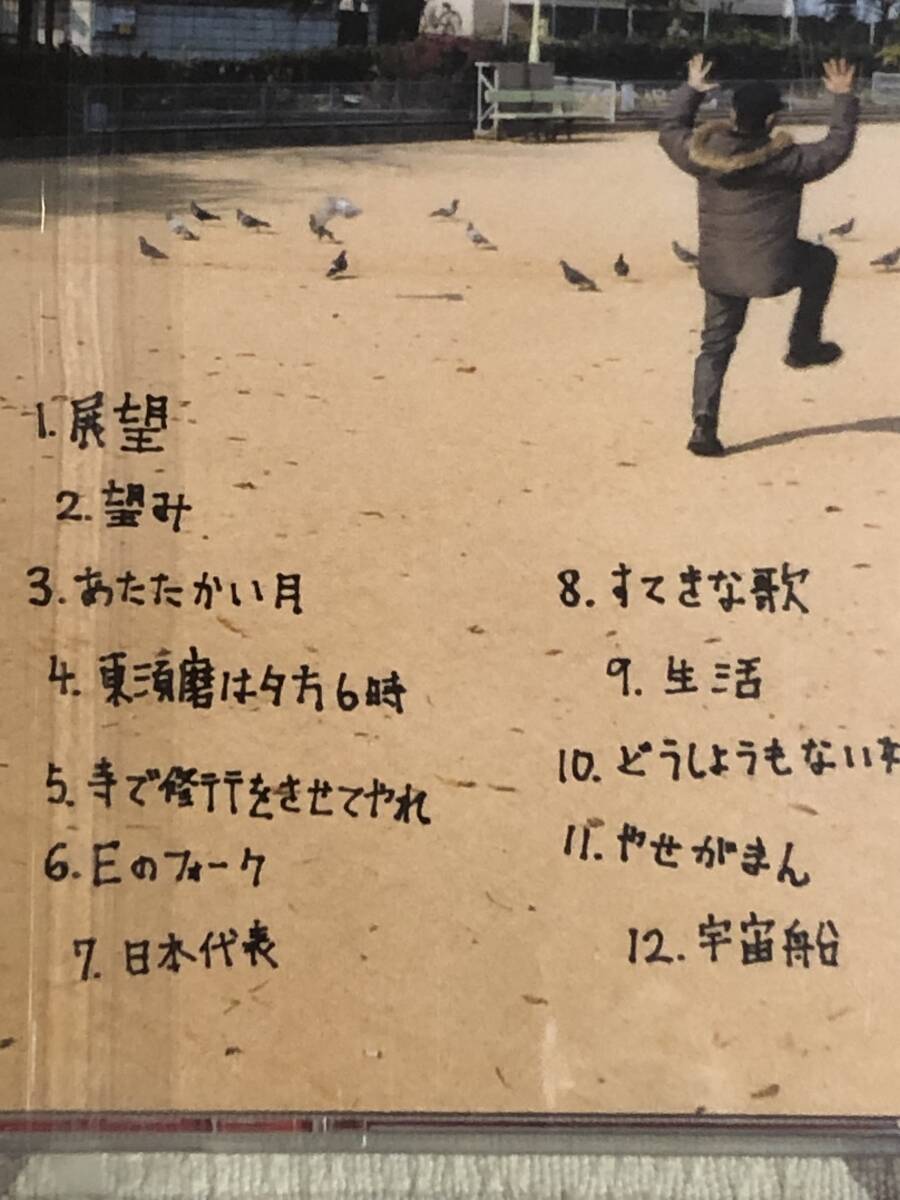 1. 展望
2. 望み
3. あたたかい月
4. 東須磨は夕方6時
5. 寺で修行をさせてやれ
6. Eのフォーク
7. 日本代表
8. すてきな歌
9. 生活
10. どうしようもない
11. やせがまん
12. 宇宙船